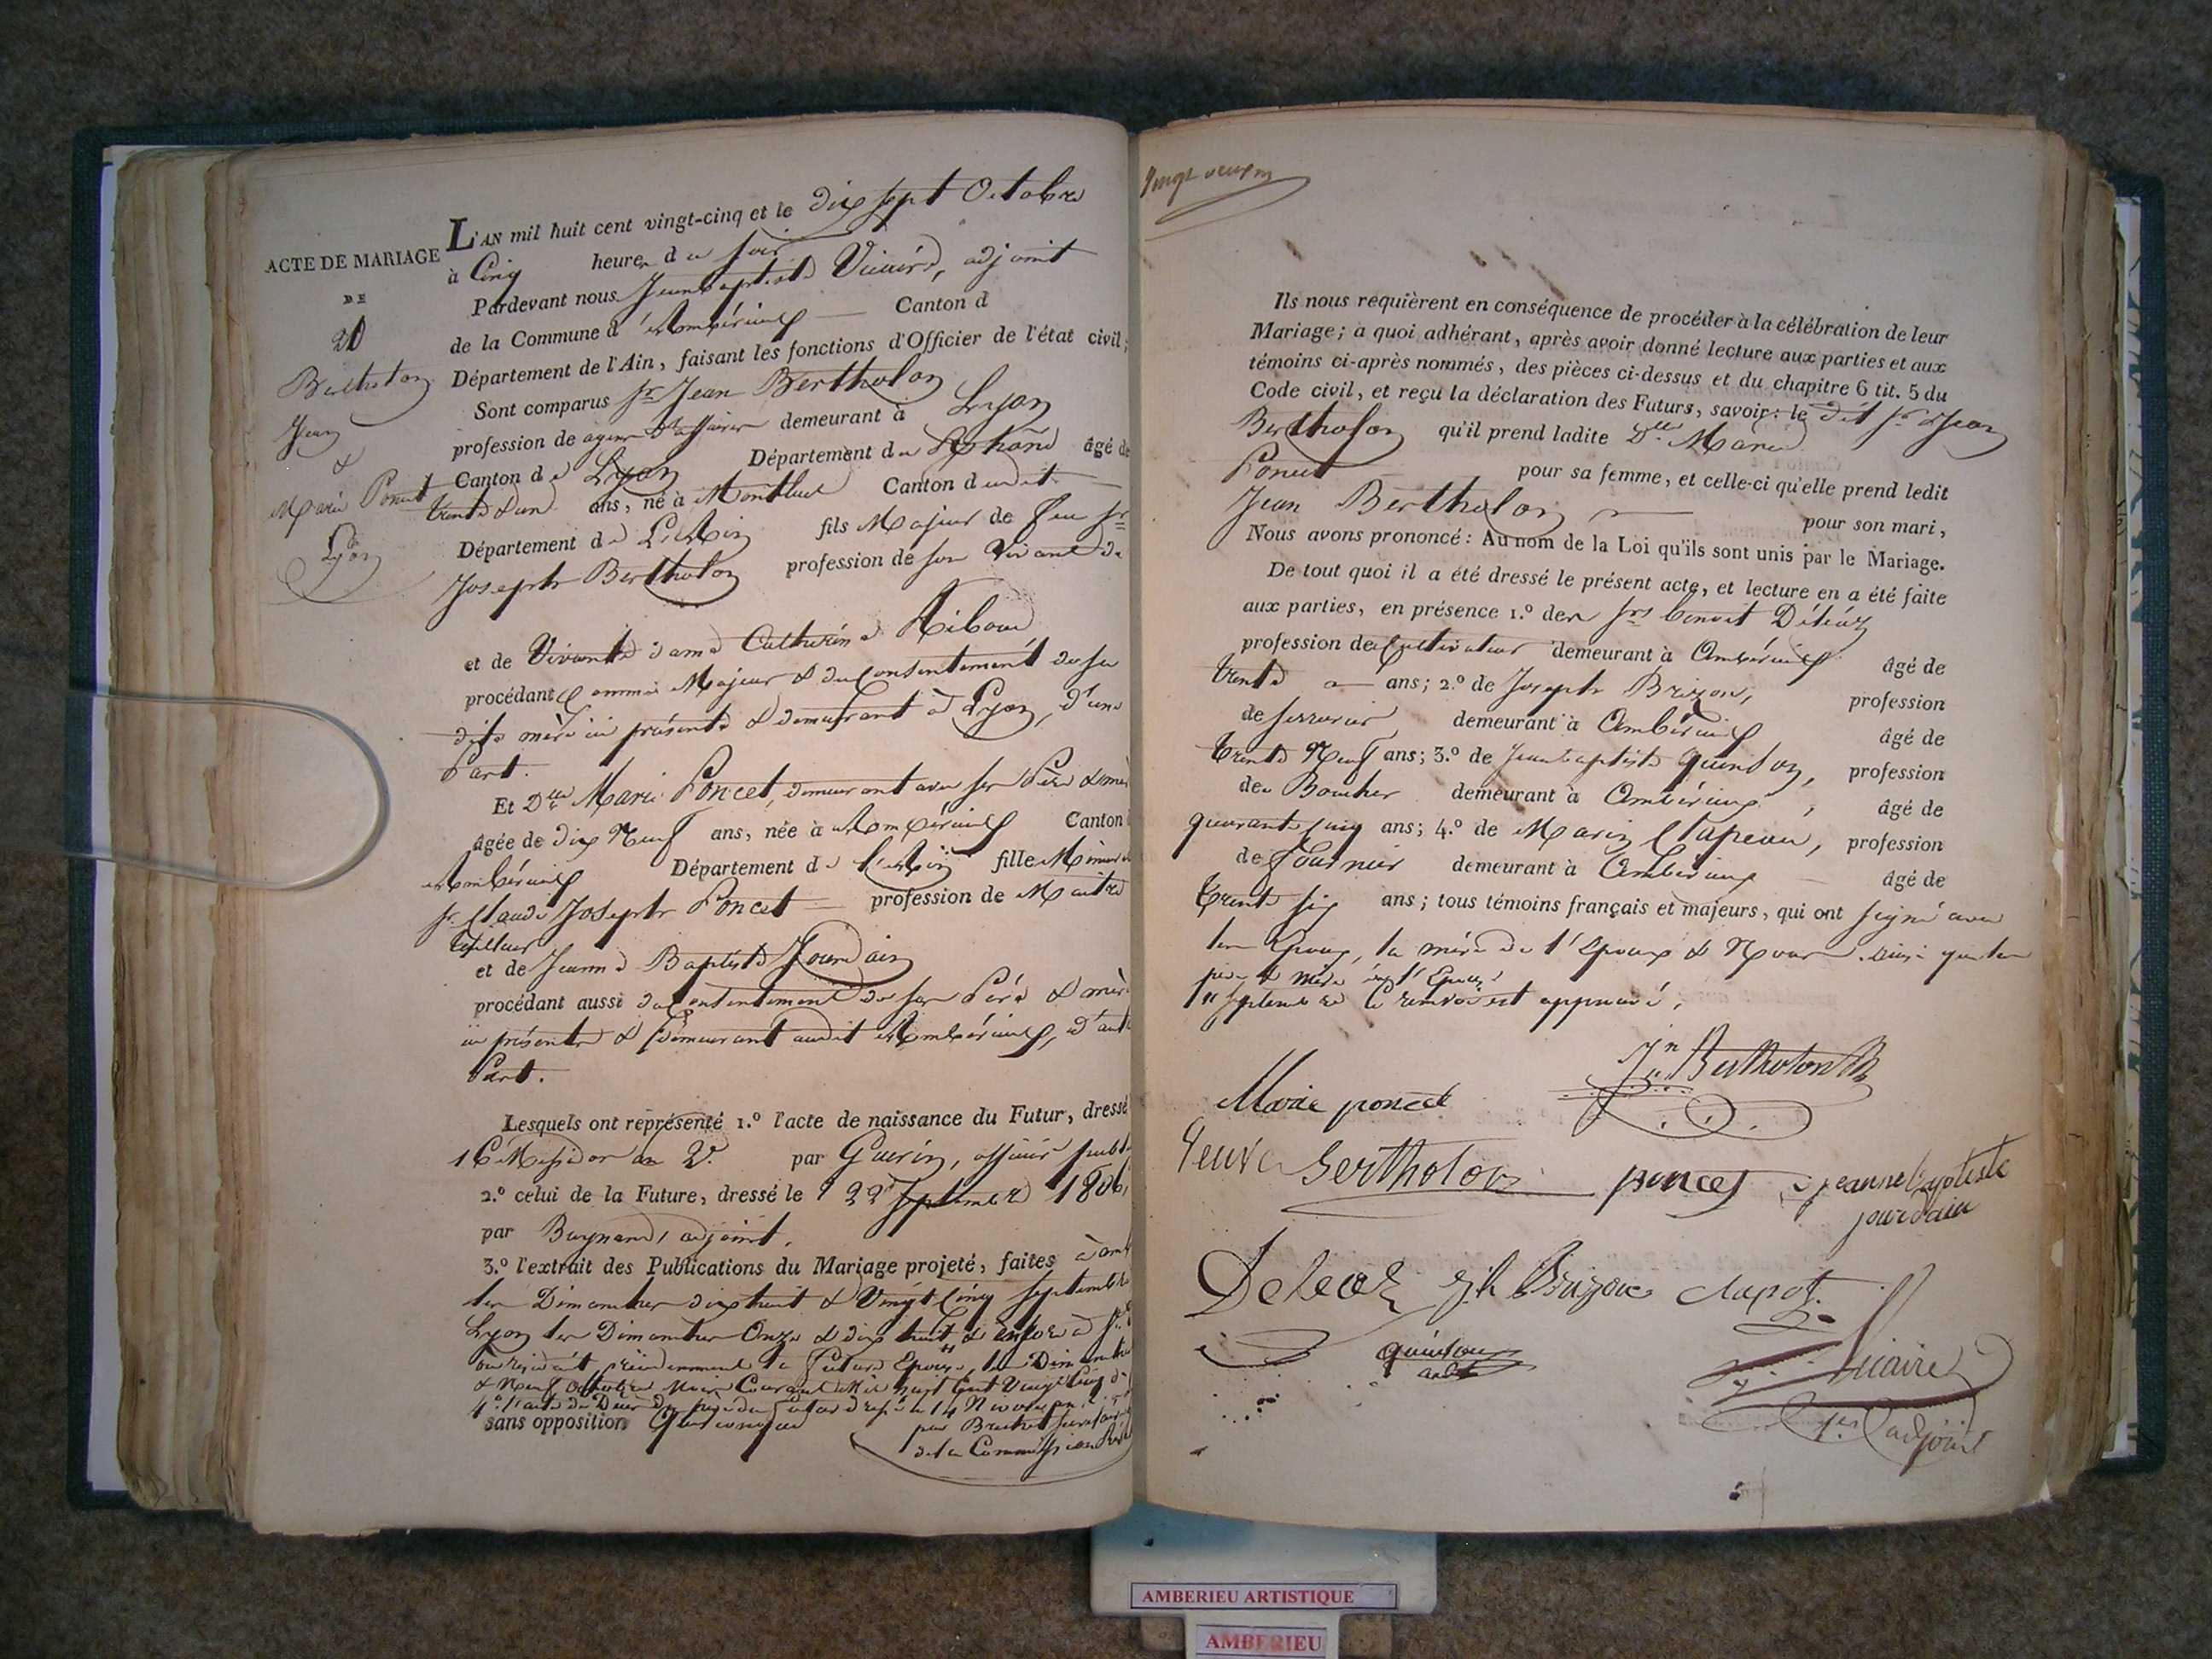 ACTE DE MARIAGE
DE
20
Bertholon
Jean
&
Marie Poncet
Lyon
L'AN mil huit cent vingt-cinq et le dix sept Octobre
à Cinq heures du soir
Pardevant nous Jean Baptiste Vicaire, adjoint
de la Commune d'Ambérieux — Canton d
Département de l'Ain, faisant les fonctions d'Officier de l'état civil;
Sont comparus Sr Jean Bertholon
profession de agent d'affaires demeurant à Lyon
Canton de Lyon Département du Rhône âgé de
trente & un ans, né à Montluel Canton dudit
Département de L'Ain fils Majeur de feu Sr
Joseph Bertholon profession de son vivant de
et de Vivante dame Catherine Riboud
procédant comme Majeur & du consentement de sa
dite mère ici présente & demeurant à Lyon, d'une
Part.
Et Dlle Marie Poncet, demeurant avec ses Père & mère
âgée de dix Neuf ans, née à Ambérieux Canton
Ambérieux Département de l'Ain fille Mineure
Sr Claude Joseph Poncet profession de Maitre
tailleur
et de Jeanne Baptiste Jourdain
procédant aussi du consentement de ses Père & mère
ici présents & demeurant audit Ambérieux, d'autre
Part.
Lesquels ont représenté 1.º l'acte de naissance du Futur, dressé
16 Messidor an 2e. par Guérin, officier public
2.º celui de la Future, dressé le 22 Septembre 1806,
par adjoint,
3.º l'extrait des Publications du Mariage projeté, faites à
les Dimanches dix huit & Vingt Cinq Septembre
Lyon les Dimanches Onze & dix huit & enfin à
où résidait précédemment la future Epouse, les Dimanches
& Neuf Octobre Mois Courant Mil huit Cent Vingt Cinq
4.º l'acte de Décès du père du futur dressé le 14
sans opposition quelconque par secrétaire
de la Commission
Ils nous requièrent en conséquence de procéder à la célébration de leur
Mariage; à quoi adhérant, après avoir donné lecture aux parties et aux
témoins ci-après nommés, des pièces ci-dessus et du chapitre 6 tit. 5 du
Code civil, et reçu la déclaration des Futurs, savoir: le dit Sr Jean
Bertholon qu'il prend ladite Dlle Marie
Poncet pour sa femme, et celle-ci qu'elle prend ledit
Jean Bertholon pour son mari,
Nous avons prononcé: Au nom de la Loi qu'ils sont unis par le Mariage.
De tout quoi il a été dressé le présent acte, et lecture en a été faite
aux parties, en présence 1.º des Srs Benoit
profession de Cultivateur demeurant à Ambérieux âgé de
trente ans; 2.º de Joseph Brizon, profession
de serrurier demeurant à Ambérieux âgé de
trente Neuf ans; 3.º de Jean Baptiste Quinson, profession
de Boucher demeurant à Ambérieux, âgé de
quarante cinq ans; 4.º de Marin profession
de Fournier demeurant à Ambérieux âgé de
trente six ans; tous témoins français et majeurs, qui ont signé avec
les Epoux, la mère de l'Epoux & Nous. ainsi que les
père & mère de l'Epouse
"Septembre le renvoi est approuvé.
Marie poncet
Jn Bertholon
Veuve Bertholon
poncet
jeanne baptiste
jourdain
Brizon
quinson
Vicaire
adjoint
AMBERIEU ARTISTIQUE
AMBERIEU